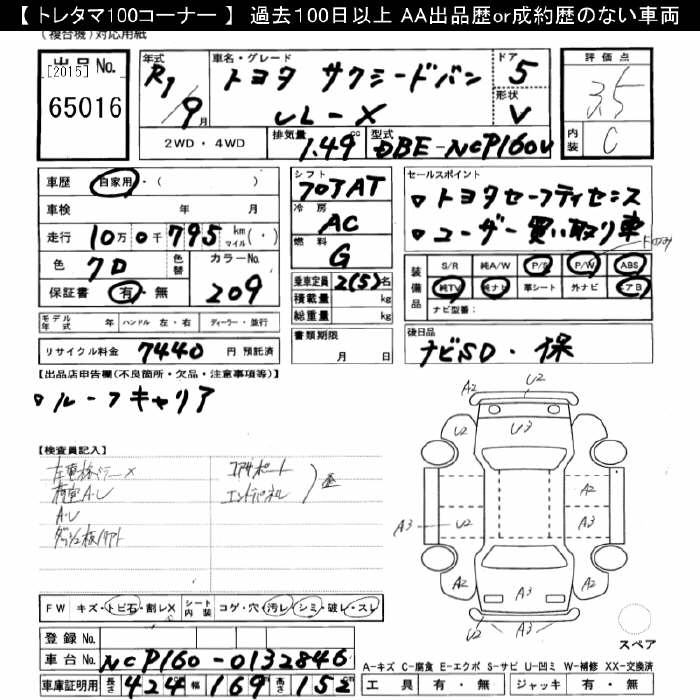 【 トレタマ100コーナー 】 過去100日以上 AA出品歴or成約歴のない車両
(複合機)対応用紙
出品No.
[2015]
65016
年式
R1/9月
車名・グレード
トヨタ サクシードバン
UL-X
ドア
5
形状
V
評価点
3.5
内装
C
2WD・4WD
排気量
1.49cc
型式
DBE-NCP160V
車歴
自家用・( )
車検 年 月
走行 10万0千795 km マイル(・)
色
色替
カラーNo.
209
保証書 有・無
シフト
フロアAT
冷房
AC
燃料
G
乗車定員 2(5)名
積載量 kg
総重量 kg
書類期限
月 日
セールスポイント
・トヨタセーフティセンス
・ユーザー買い取り車
装備品
S/R 純A/W P/S P/W ABS
純TV 純ナビ 革シート 外ナビ エアB
ナビ型番:
モデル年式 年 ハンドル 左・右 ディーラー・並行
リサイクル料金 7440 円 預託済
後日品
ナビSD・保
【出品店申告欄(不良箇所・欠品・注意事項等)】
・ルーフキャリア
【検査員記入】
A・U
コアサポート
エンドパネル
A2
U2
U2
U3
U2
A2
A3
U2
A3
A2
A3
A2
U2
A3
FW キズ・トビ石・割レX シート内装 コゲ・穴・汚レ・シミ・破レ・スレ
スペア
登録No.
車台No. NCP160-0132846
車庫証明用 長さ 424 幅 169 高さ 152
A-キズ C-腐食 E-エクボ S-サビ U-凹ミ W-補修 XX-交換済
工具 有・無 ジャッキ 有・無